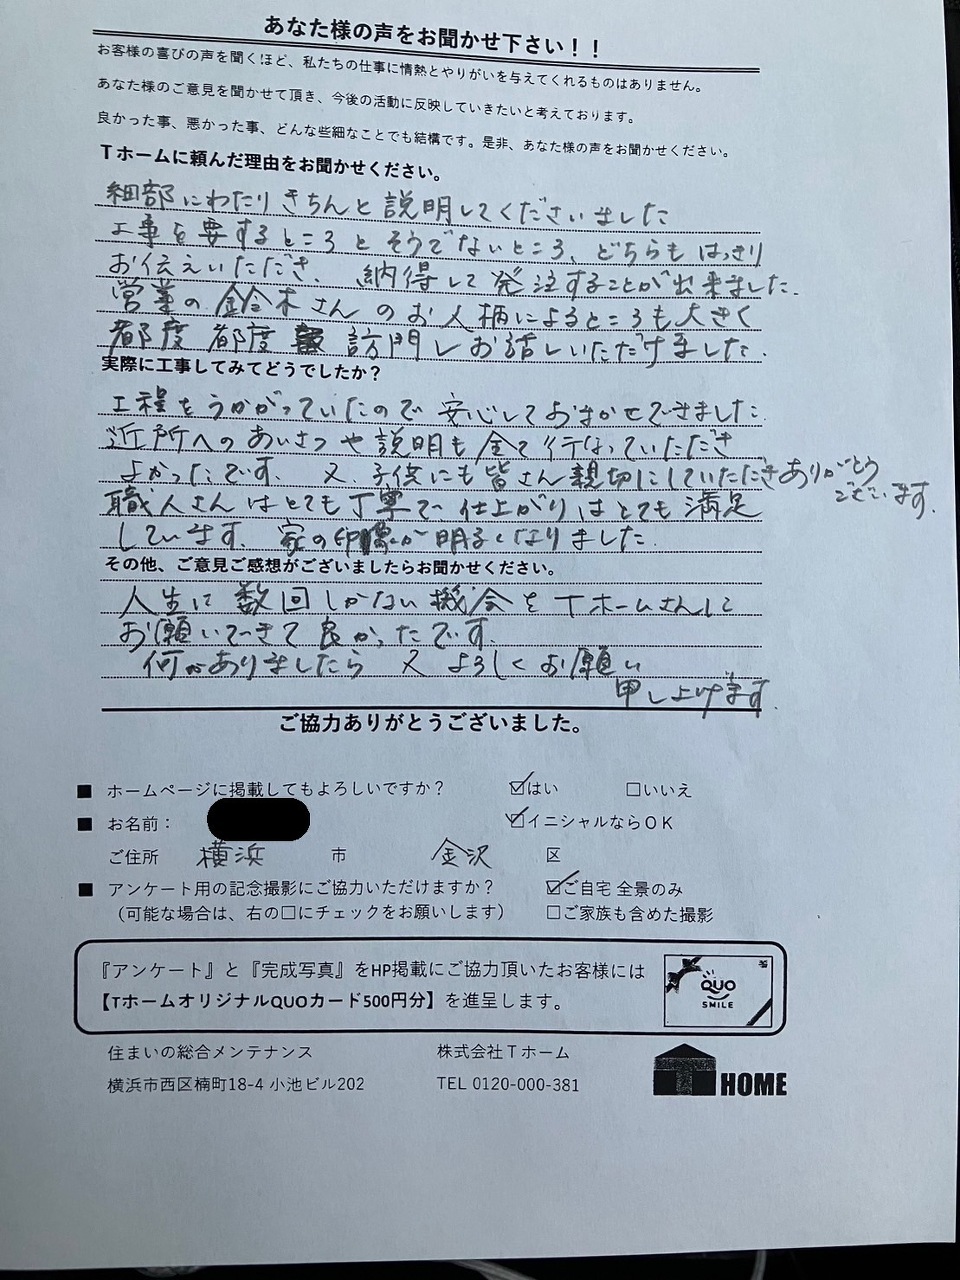 あなた様の声をお聞かせ下さい！！
お客様の喜びの声を聞くほど、私たちの仕事に情熱とやりがいを与えてくれるものはありません。
あなた様のご意見を聞かせて頂き、今後の活動に反映していきたいと考えております。
良かった事、悪かった事、どんな些細なことでも結構です。是非、あなた様の声をお聞かせください。
Ｔホームに頼んだ理由をお聞かせください。
細部にわたりきちんと説明してくださいました
工事を要するところとそうでないところ、どちらもはっきり
お伝えいただき、納得して発注することが出来ました.
営業の鈴木さんのお人柄によるところも大きく
都度都度 訪問しお話しいただけました.
実際に工事してみてどうでしたか？
工程をうかがっていたので安心しておまかせできました.
近所へのあいさつや説明も全て行なっていただき
よかったです. 又、子供にも皆さん親切にしていただきありがとう
ございます.
職人さんはとても丁寧で仕上がりはとても満足
しています. 家の印象が明るくなりました.
その他、ご意見ご感想がございましたらお聞かせください。
人生に数回しかない機会をTホームさんに
お願いできて良かったです.
何かありましたら 又よろしくお願い
申し上げます.
ご協力ありがとうございました。
■ ホームページに掲載してもよろしいですか？ ☑はい □いいえ
■ お名前： ☑イニシャルならＯＫ
ご住所 横浜 市 金沢 区
■ アンケート用の記念撮影にご協力いただけますか？ ☑ご自宅 全景のみ
（可能な場合は、右の□にチェックをお願いします） □ご家族も含めた撮影
『アンケート』と『完成写真』をHP掲載にご協力頂いたお客様には
【TホームオリジナルQUOカード500円分】を進呈します。
QUO
SMILE
住まいの総合メンテナンス 株式会社Ｔホーム
横浜市西区楠町18-4 小池ビル202 TEL 0120-000-381
T HOME